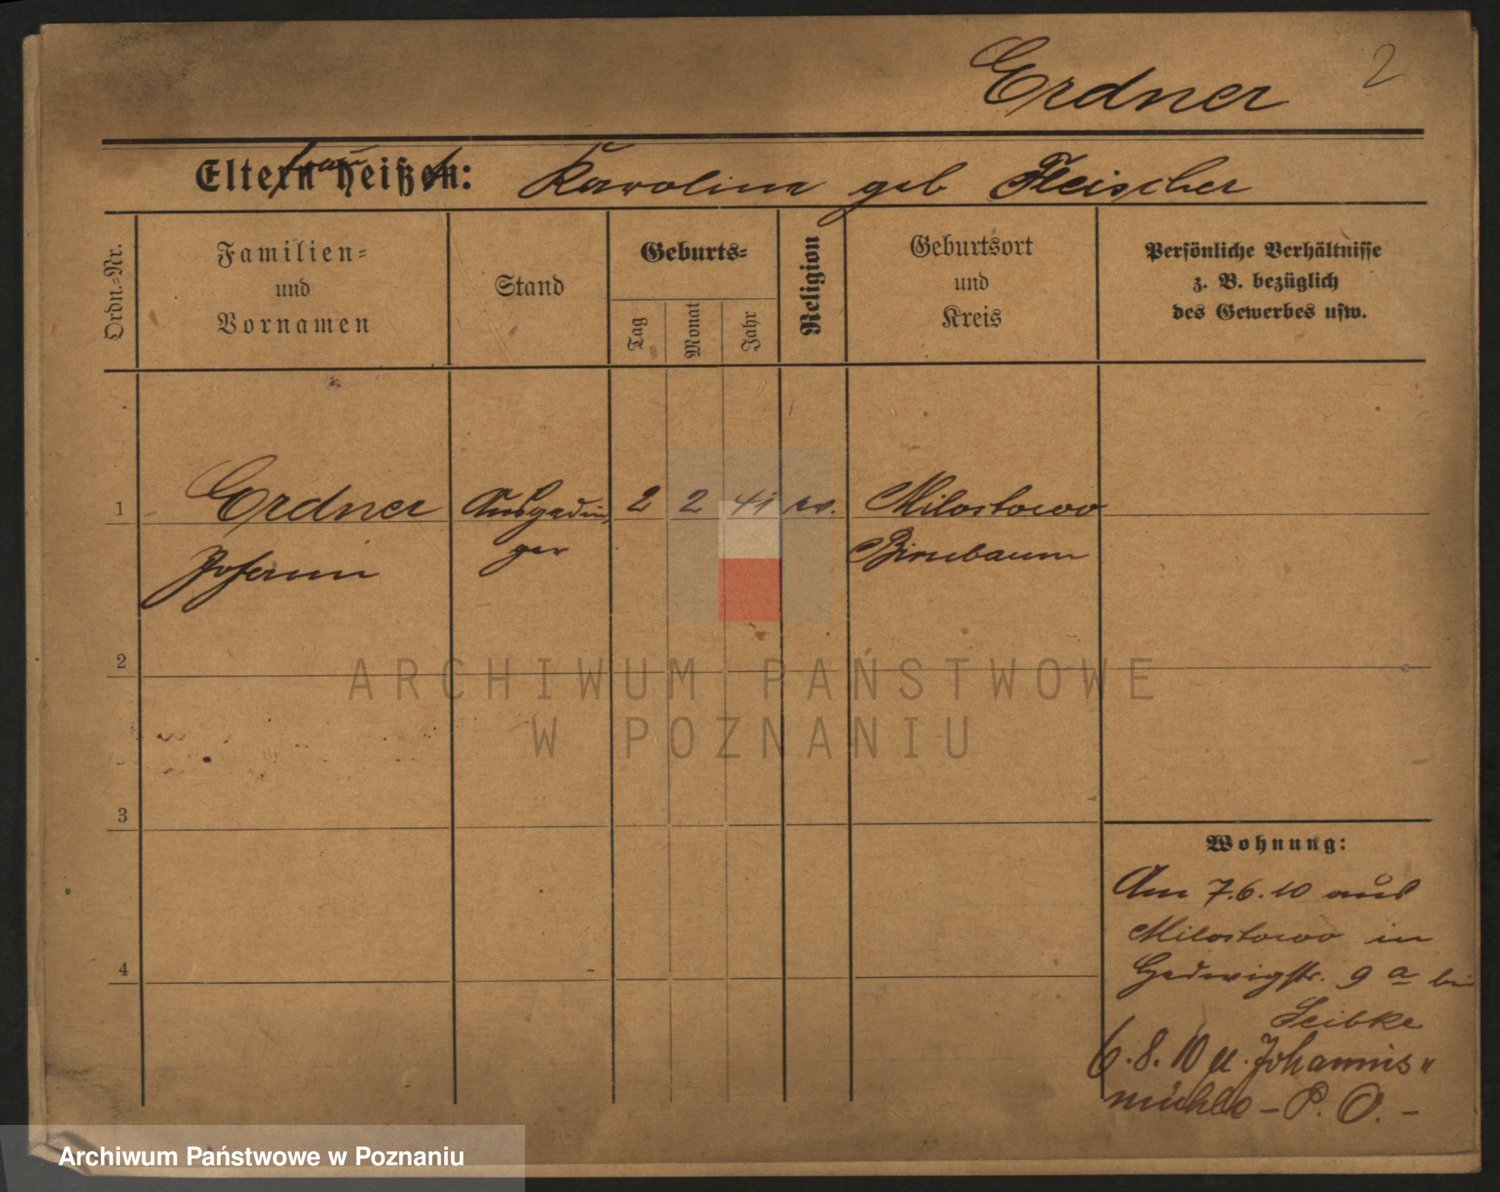 Erdner 2
Eltern heißen: Karoline geb Fleischer
Frau heißt
Ordn.-Nr.
Familien-
und
Vornamen
Stand
Geburts-
Tag
Monat
Jahr
Religion
Geburtsort
und
Kreis
Persönliche Verhältnisse
z. B. bezüglich
des Gewerbes usw.
1 Erdner Ausgedin 2 2 41 ev. Milostowo
Johann ger Birnbaum
2
ARCHIWUM PAŃSTWOWE
W POZNANIU
3
Wohnung:
Am 7.6.10 aus
Milostowo in
4
Hedwigstr. 9 a bei
Leibke
6.8.10 n. Johannis"
mühle - P. O. -
Archiwum Państwowe w Poznaniu